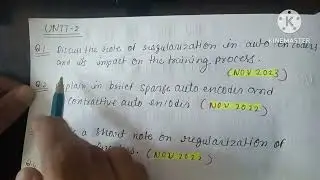 KINEMASTER
UNIT-2
Q.1 Discuss the role of regularization in auto encoders
and its impact on the training process.
(NOV 2023)
Q.2 plain in brief sparse auto encoder and
contractive auto encoder (NOV 2022)
a short note on regularization of
(NOV 2022)